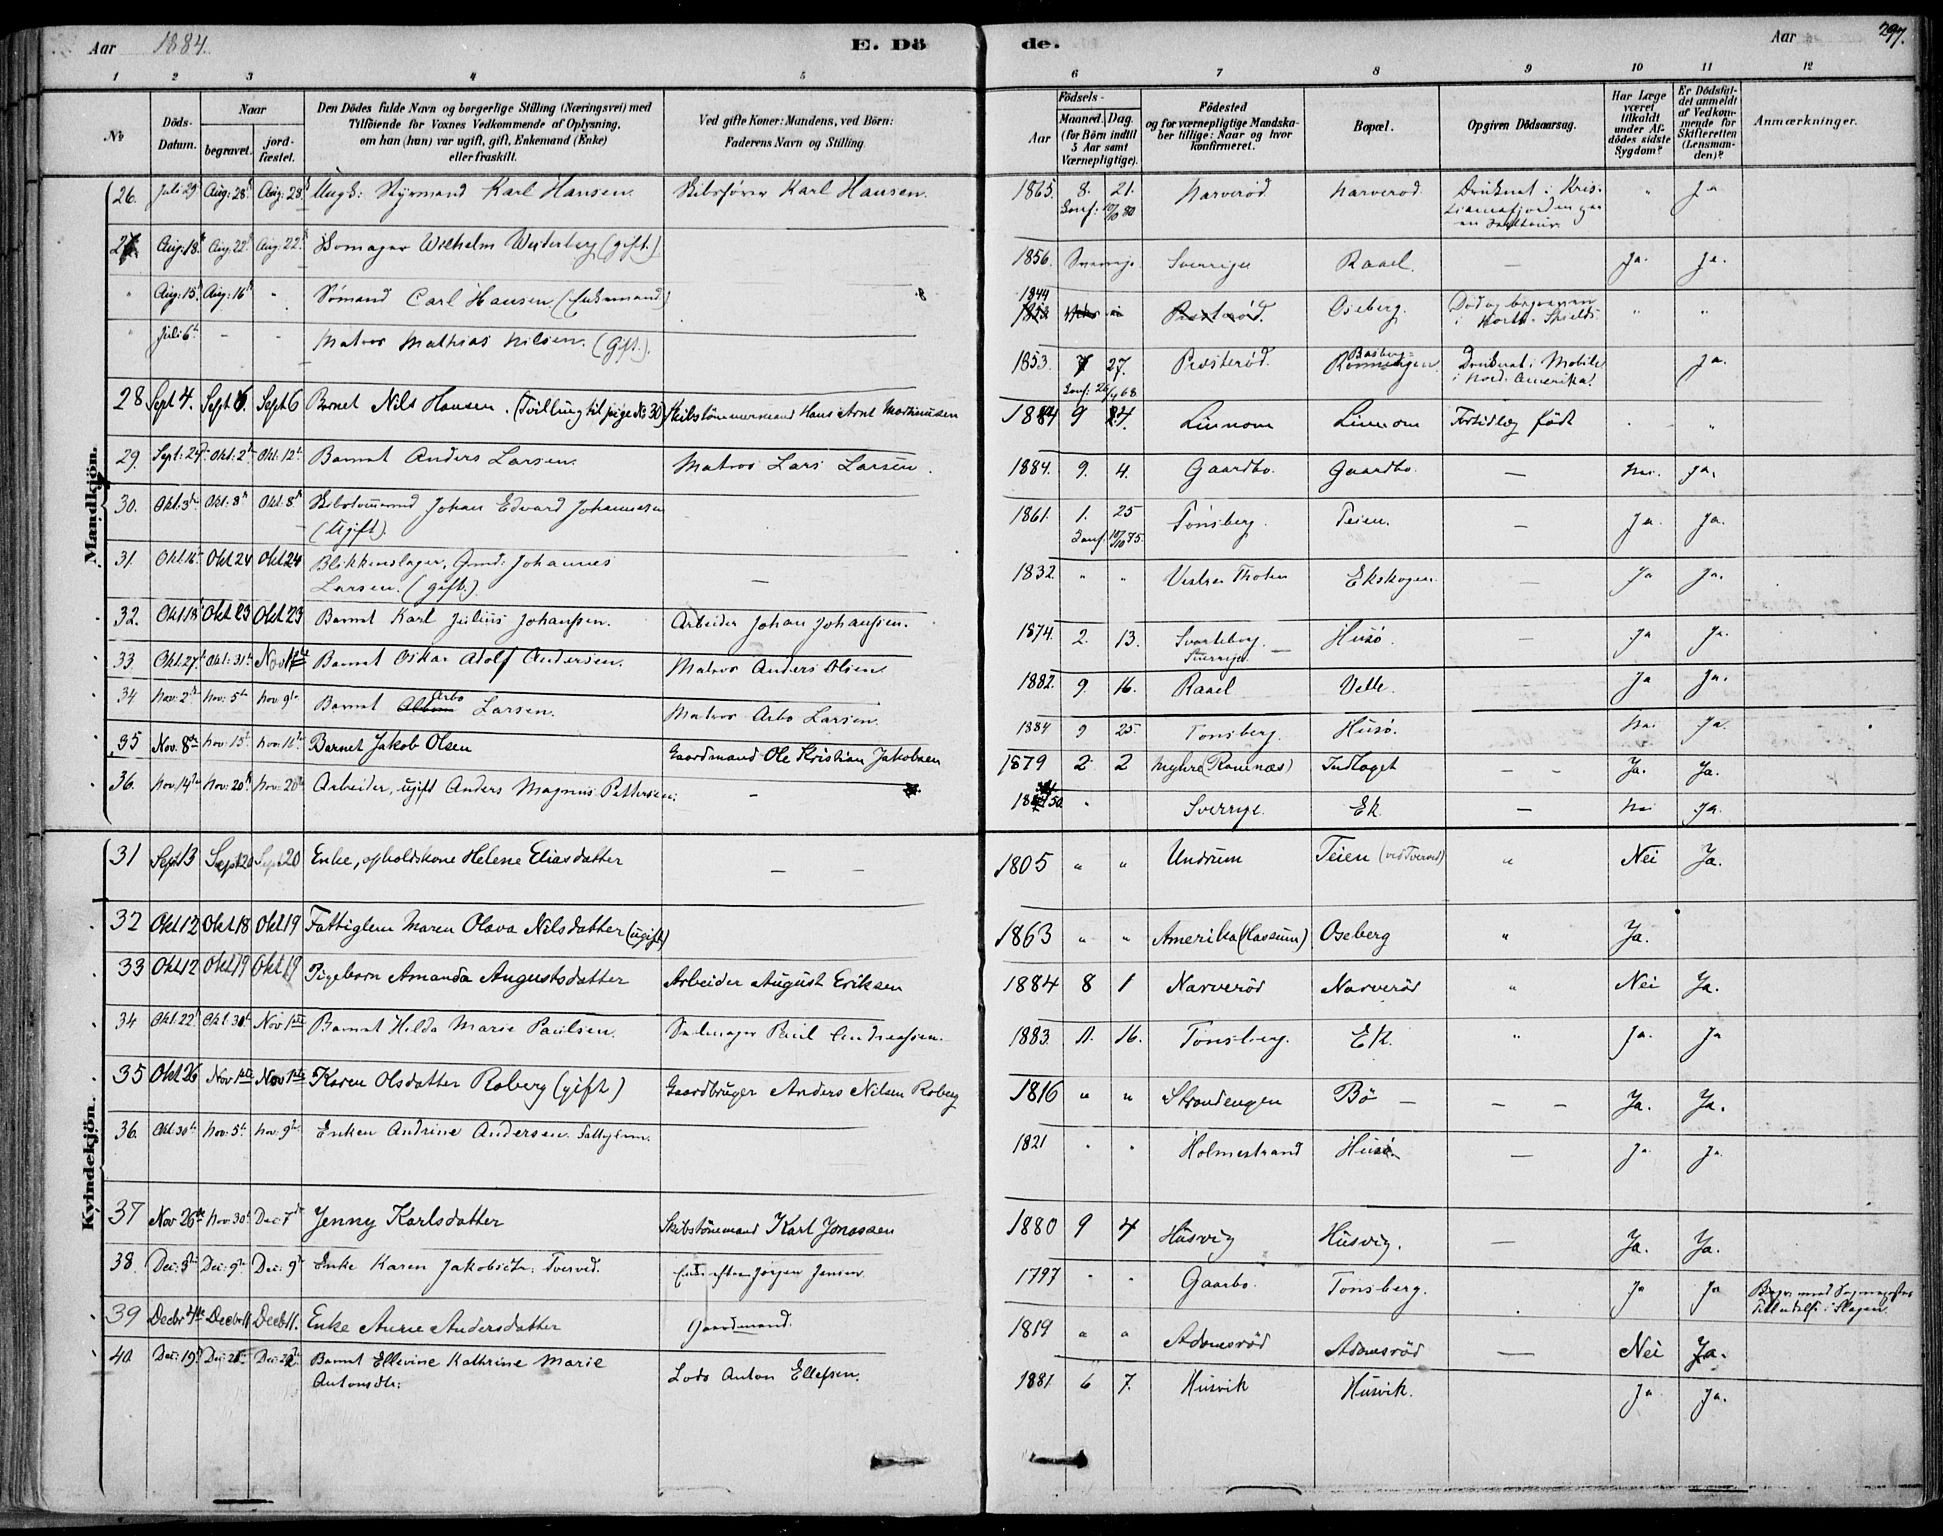 Aar 1884. E. Dö
de. Aar 297.
1 2 3 4 5 6 7 8 9 10 11 12
No
Döds-Datum.
Naar
begravet.
jord-fæstet.
Den Dödes fulde Navn og borgerlige Stilling (Næringsvei) med
Tilföiende for Voxnes Vedkommende af Oplysning,
om han (hun) var ugift, gift, Enkemand (Enke)
eller fraskilt.
Ved gifte Koner: Mandens, ved Börn:
Faderens Navn og Stilling.
Födsels-
Aar
Maaned. Dag.
(for Börn indtil
5 Aar samt
Værnepligtige).
Födested
og for værnepligtige Mandska-
ber tillige: Naar og hvor
konfirmeret.
Bopæl.
Opgiven Dödsaarsag.
Har Læge
været
tilkaldt
under Af-
dödes sidste
Sygdom?
Er Dödsfal-
det anmeldt
af Vedkom-
mende for
Skifteretten
(Lensman-
den)?
Anmærkninger.
Mandkjön.
26. Juli 29 Aug: 28 Aug: 28 Ungk: Styrmand Karl Hansen. Skibsfører Karl Hansen. 1865. 8. 21. Narverød Narverød Druknet i Kris- " Ja
Conf: 10/10 80 tianiafjorden paa
en
27. Aug: 18. Aug: 22 Aug: 22 Skomager Wilhelm Westerberg (gift.) 1856. Sverrige Raael. — Ja. Ja.
" Aug: 15 Aug: 16 " Sømand Carl Hansen (Enkemand) 1844 Præsterød. Oseberg. Død og begraven " "
i North Shields.
" Juli 6 - - Matros Mathias Nilsen. (Gift.) 1853. 7 27. Præsterød. Basberg- Druknet i Mobile Ja.
Conf: i Nord Amerika.
28 Sept 4. Sept 6. Sept 6 Barnet Nils Hansen. (Tvilling til pige No 30) Skibstømmermand Hans Arnt Martinusen 1884 9 4. Linnom Linnom Fortidlig født . "
29. Sept: 24 Okt: 2 Okt: 12 Barnet Anders Larsen. Matros Lars Larsen. 1884. 9. 4. Gaardbo. Gaardbo. — Nei. Ja.
30. Okt: 3 Okt: 8 Okt: 8 Skibstømmermd Johan Edvard Johannesen - 1861. 1. 25 Tønsberg. Teien. — Ja. Ja.
(Ugift). Conf: 10/10 75.
31. Okt 16 Okt 24 Okt 24 Blikkenslager, Gmd: Johannes 1832. " " Vestre Thoten Ekskogen. — Ja Ja.
Larsen. (gift.) —
32. Okt 18 Okt 23 Okt 23 Barnet Karl Julius Johansen. Arbeider Johan Johansen. 1874. 2. 13. Svarteborg. Husø. — Ja Ja.
Sverrige.
33 Okt: 27 Okt: 31 Nov Barnet Oskar Adolf Andersen. Matros Anders Olsen. 1882. 9. 16. Raael Velle. Ja Ja.
34 Nov: 2 Nov: 5 Nov: 9 Barnet Arbo Larsen. Matros Arbo Larsen. 1884 9 25. Tønsberg. Husø. Nei Ja.
35 Nov. 8de Nov: 15 Nov: 16 Barnet Jakob Olsen Gaardmand Ole Kristian Jakobsen 1879 2 2 Myhre (Ramnæs) Indlaget - - Ja. Ja.
36. Nov: 14 Nov: 20 Nov: 20 Arbeider, ugift Anders Magnus Pettersen: - 50 " Sverrige. Ek. — Nei Ja.
Kvindekjön.
31 Sept 13 Sept 20 Sept 20 Enke, opholdskone Helene Eliasdatter - - 1805 " " Undrum Teien (ved Tverved) " Nei Ja.
32 Okt 12 Okt 18 Okt 19 Fattiglem Maren Olava Nilsdatter (ugift) 1863 " " Amerika Oseberg " Ja.
33 Okt 12 Okt 19 Okt 19 Pigebarn Amanda Augustsdatter Arbeider August Eriksen 1884 8 1 Narverød Narverød " Nei Ja.
34 Okt: 22 Okt: 30 Nov 1ste Barnet Hilda Marie Paulsen. Seilmager Paul Andreassen. 1883. 11. 16. Tønsberg. Ek. " Ja. Ja
35 Okt 26 Nov 1ste Nov 1ste Karen Olsdatter Roberg (gift) Gaardbruger Anders Nilsen Roberg 1816 " " Strandengen Bö — - - Ja. Ja.
36. Okt: 30 Nov: 5 Nov: 9 Enken Andrine Andersen. Fattiglem. 1821 " " Holmestrand Husø. — Ja Ja.
37 Nov 26de Nov: 30 Dec: 7 Jenny Karlsdatter Skibstømmermand Karl Jonassen 1880 9 4 Husvig Husvig. — Ja. Ja.
38. Dec: 3 Dec: 9 Dec: 9 Enke Karen Jakobsdtr: Tverved. Enke efter Jørgen Jensen 1797 " " Gaarbo. Tønsberg. Ja Ja Begr. med Sognepræstens
Tilladelse i Slagen.
39 Decbr 4de Decbr 11. Decbr 11. Enke Anne Andersdatter Gaardmand. 1819 " " Adamsrød Adamsrød — Nei Ja.
40. Dec: 19 Dec: 28 Dec: 28 Barnet Ellevine Kathrine Marie Lods Anton Ellefsen. 1881. 6 7. Husvik Husvik. Ja Ja.
Antonsdtr: